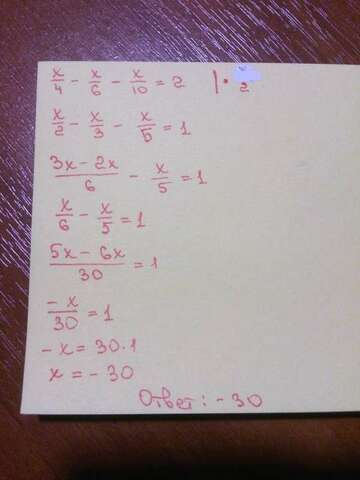 x/4 - x/6 - x/10 = 2 | · 2
x/2 - x/3 - x/5 = 1
(3x - 2x)/6 - x/5 = 1
x/6 - x/5 = 1
(5x - 6x)/30 = 1
-x/30 = 1
-x = 30·1
x = -30
Ответ: -30